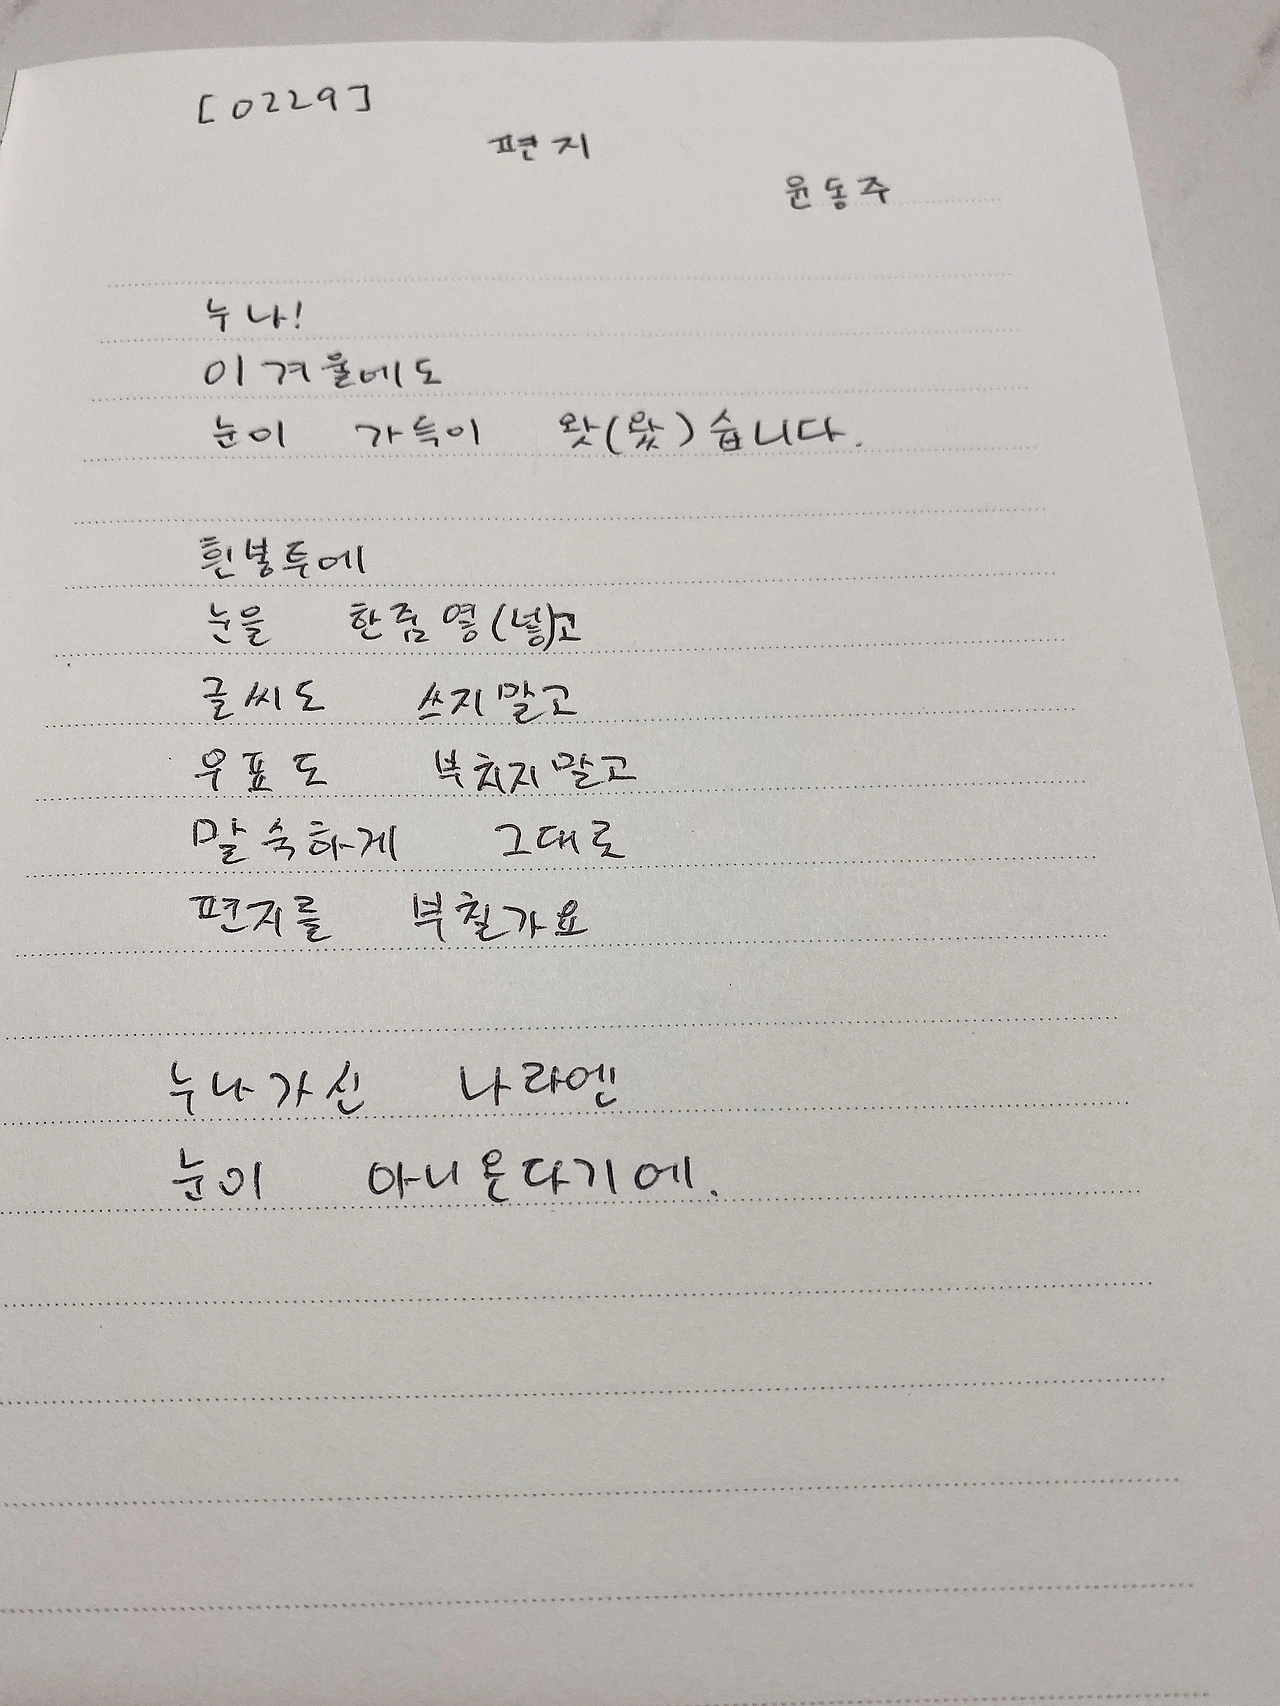 [0229]
편지
윤동주
누나!
이겨울에도
눈이 가득이 왓(왔)습니다.
흰봉투에
눈을 한줌옇(넣)고
글씨도 쓰지말고
우표도 부치지말고
말숙하게 그대로
편지를 부칠가요
누나가신 나라엔
눈이 아니온다기에.